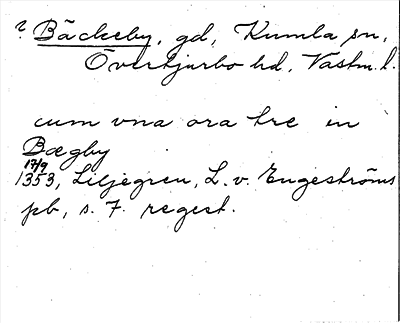 ? Bäckeby, gd, Kumla sn,
Övertjurbo hd, Västm. l.
cum vna ora tre in
Bægby
17/9
1353, Liljegren, L. v. Engeströms
pb, s. 7. regest.